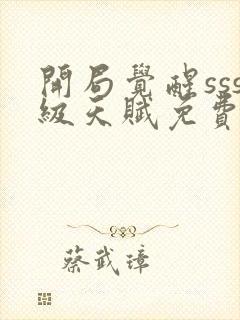 開局覺醒sss
級天賦免費
蔡武璋